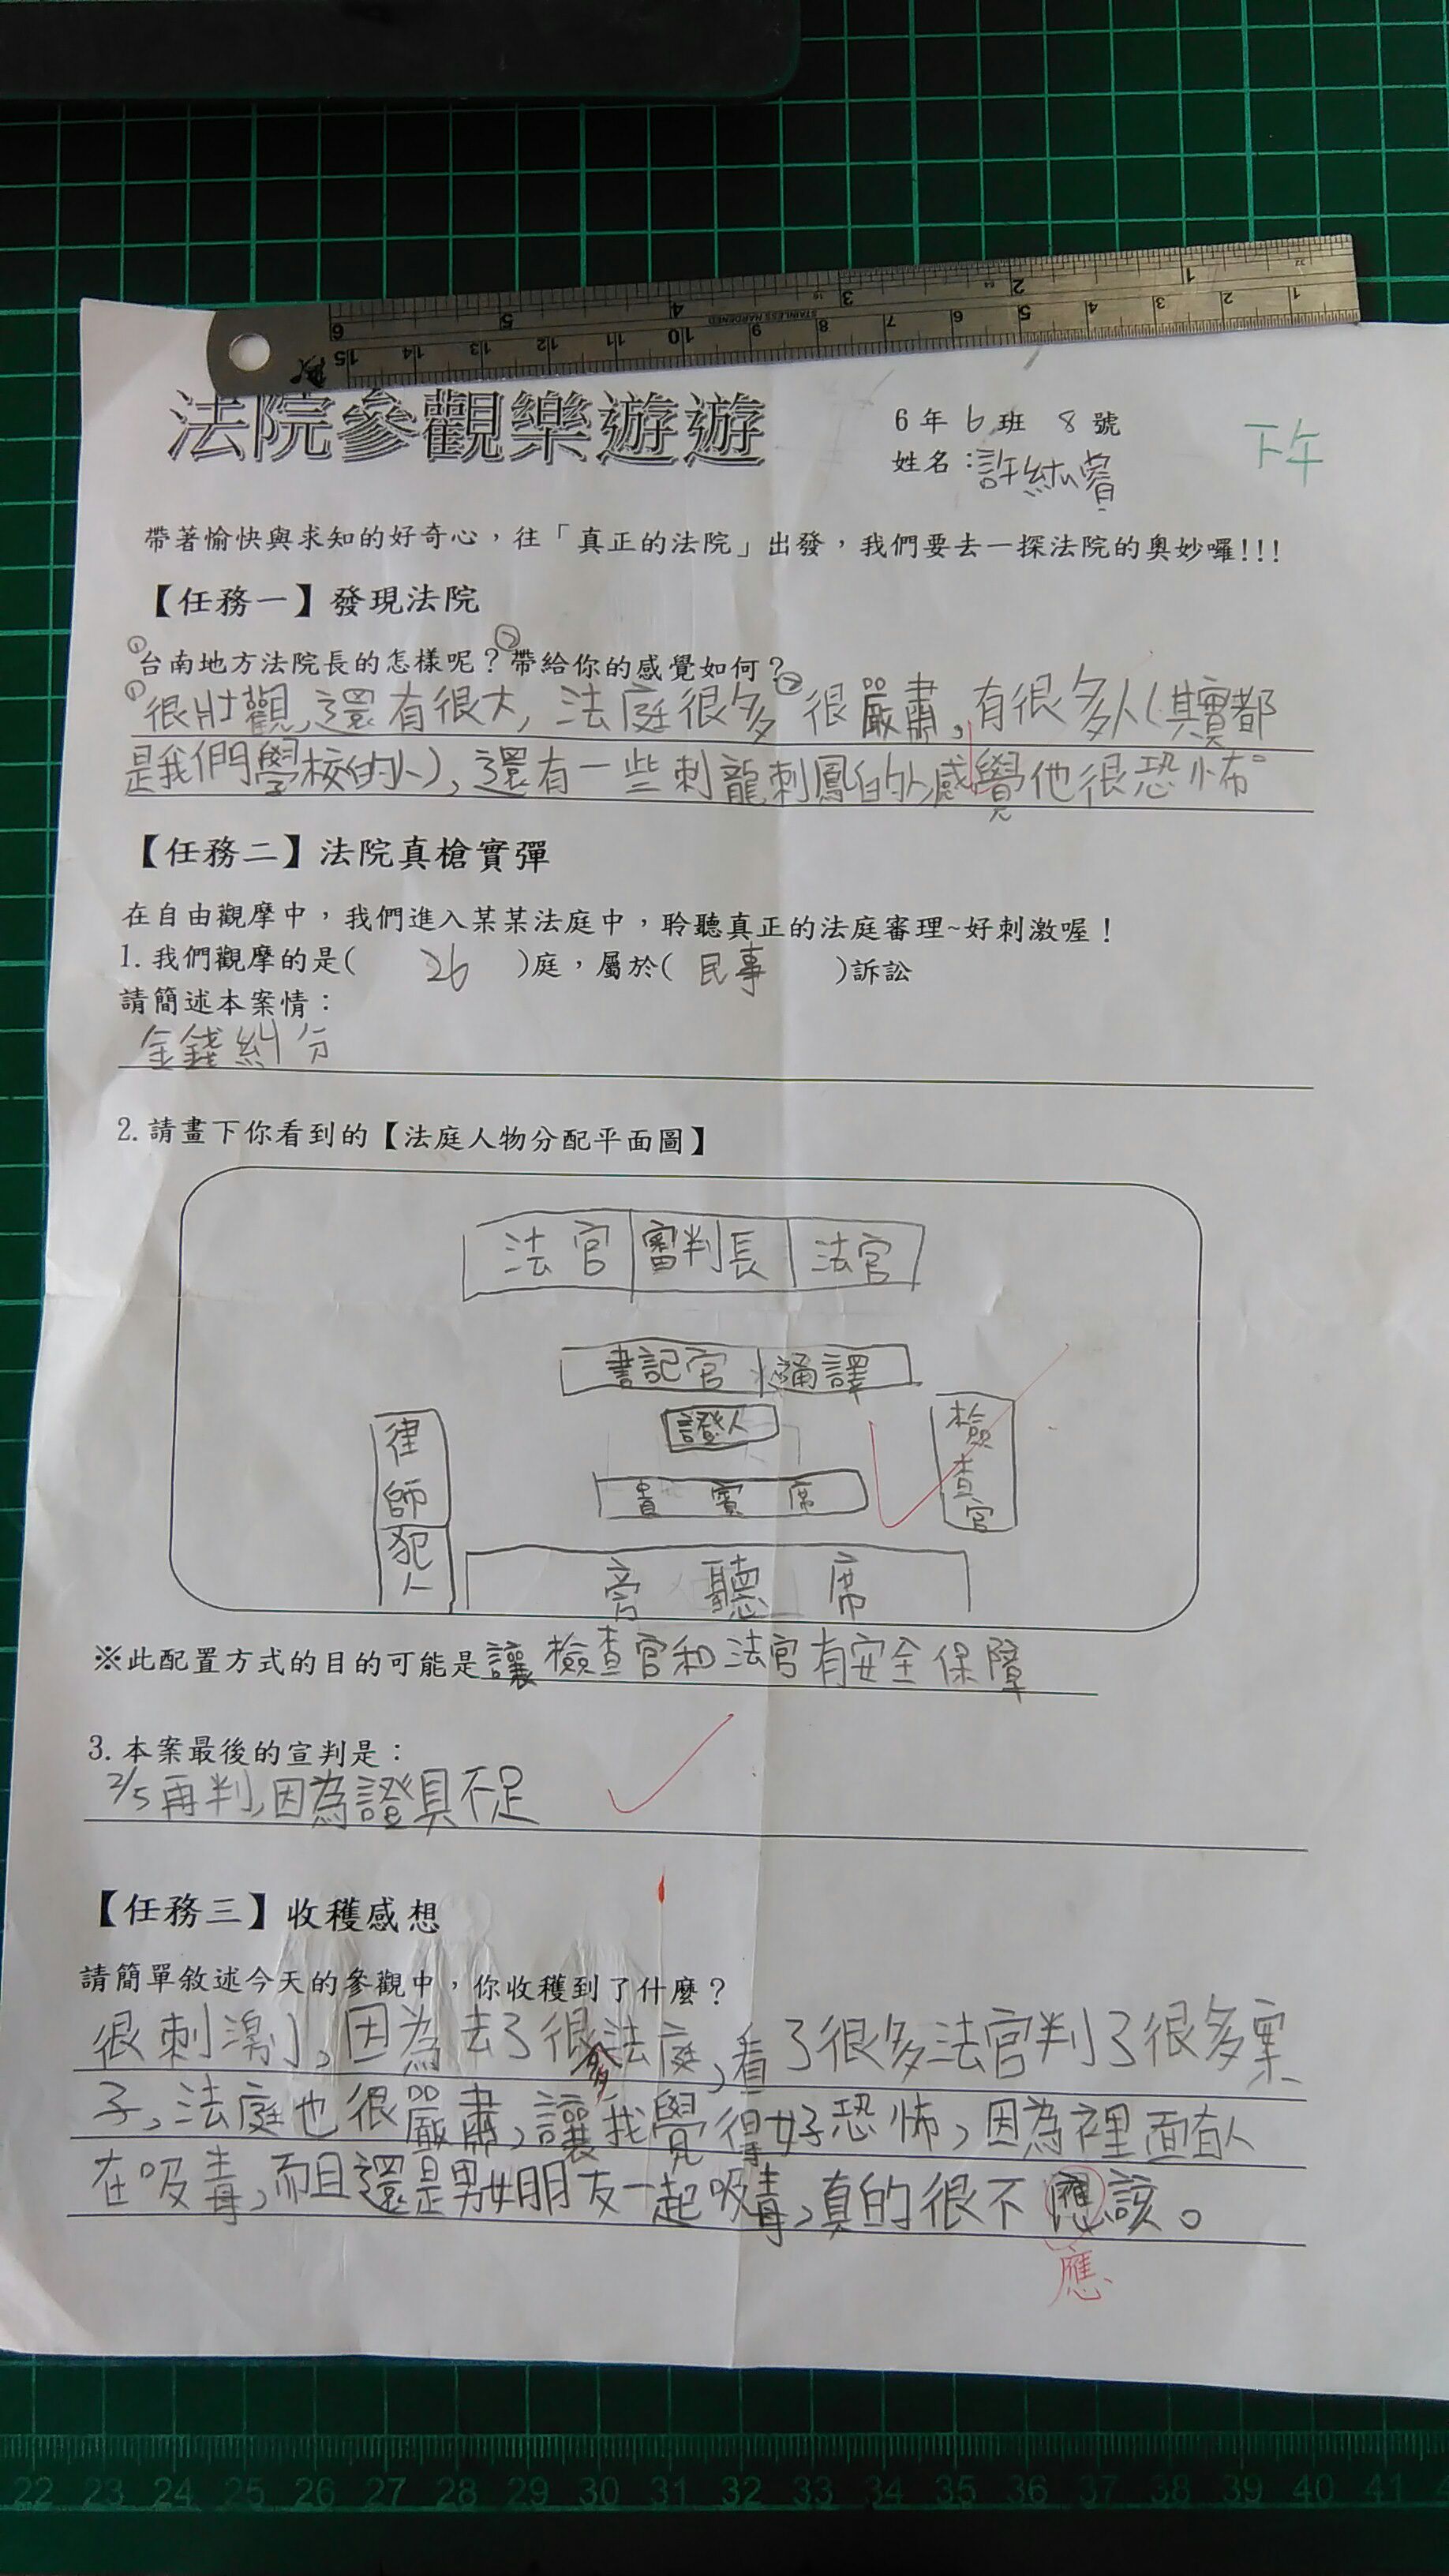 法院參觀樂遊遊
6年6班 8號
姓名:許紘睿
下午
帶著愉快與求知的好奇心,往「真正的法院」出發,我們要去一探法院的奧妙囉!!!
【任務一】發現法院
①台南地方法院長的怎樣呢?②帶給你的感覺如何?
①很壯觀,還有很大,法庭很多 ②很嚴肅,有很多人(其實都
是我們學校的人),還有一些刺龍刺鳳的人感覺他很恐怖。
【任務二】法院真槍實彈
在自由觀摩中,我們進入某某法庭中,聆聽真正的法庭審理~好刺激喔!
1.我們觀摩的是( 26 )庭,屬於( 民事 )訴訟
請簡述本案情:
金錢糾分
2.請畫下你看到的【法庭人物分配平面圖】
法官 審判長 法官
書記官 通譯
證人
律師
檢查官
貴賓席
犯人
旁聽席
※此配置方式的目的可能是讓檢查官和法官有安全保障
3.本案最後的宣判是:
2/5再判,因為證具不足
【任務三】收穫感想
請簡單敘述今天的參觀中,你收穫到了什麼?
很刺激,因為去了很多法庭,看了很多法官判了很多案
子,法庭也很嚴肅,讓我覺得好恐怖,因為裡面有人
在吸毒,而且還是男女朋友一起吸毒,真的很不應該。
應
STAINLESS HARDENED
1 2 3 4 5 6
1 2 3 4 5 6 7 8 9 10 11 12 13 14 15
22 23 24 25 26 27 28 29 30 31 32 33 34 35 36 37 38 39 40 41